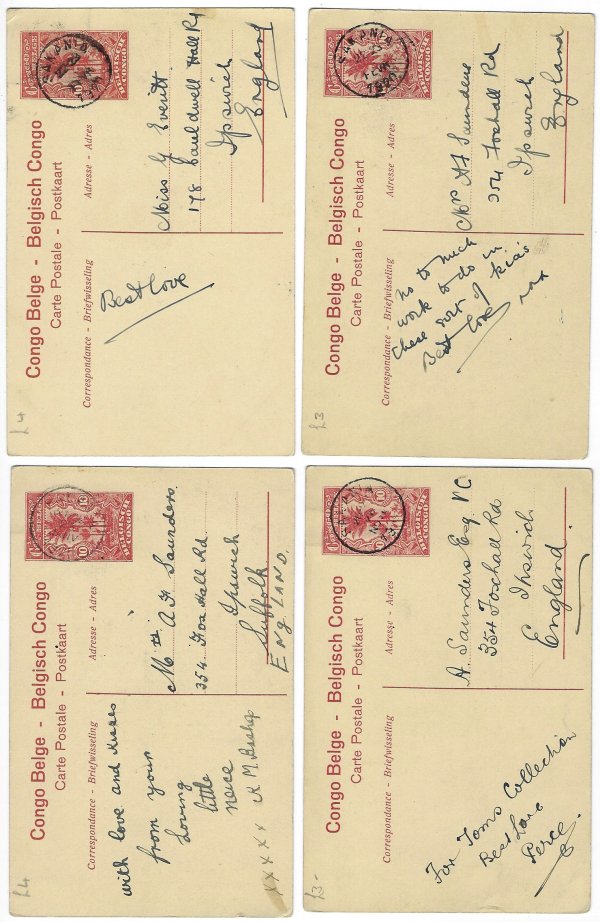 Congo Belge - Belgisch Congo
Carte Postale - Postkaart
Correspondance - Briefwisseling
Adresse - Adres
SAKANIA
BELGISCH
CONGO
Best love
Miss G Everitt
178 Cauldwell Hall Rd
Ipswich
England
£4
Congo Belge - Belgisch Congo
Carte Postale - Postkaart
Correspondance - Briefwisseling
Adresse - Adres
SAKANIA
BELGISCH
CONGO
no to much
work to do in
these sort of
Best love
xxx
Mrs A F Saunders
354 Foxhall Rd
Ipswich
England
£3
Congo Belge - Belgisch Congo
Carte Postale - Postkaart
Correspondance - Briefwisseling
Adresse - Adres
10
10
BELGISCH
CONGO
with love and kisses
from your
loving
little
neice
x x x x x
M
A F Saunders.
354. Fox Hall Rd.
Ipswich
Suffolk
ENGLAND.
£4
Congo Belge - Belgisch Congo
Carte Postale - Postkaart
Correspondance - Briefwisseling
Adresse - Adres
10
BELGISCH
CONGO
For Toms Collection
Best Love
Perce
A. Saunders Esq VC
354 Foxhall Rd
Ipswich
England
£3-